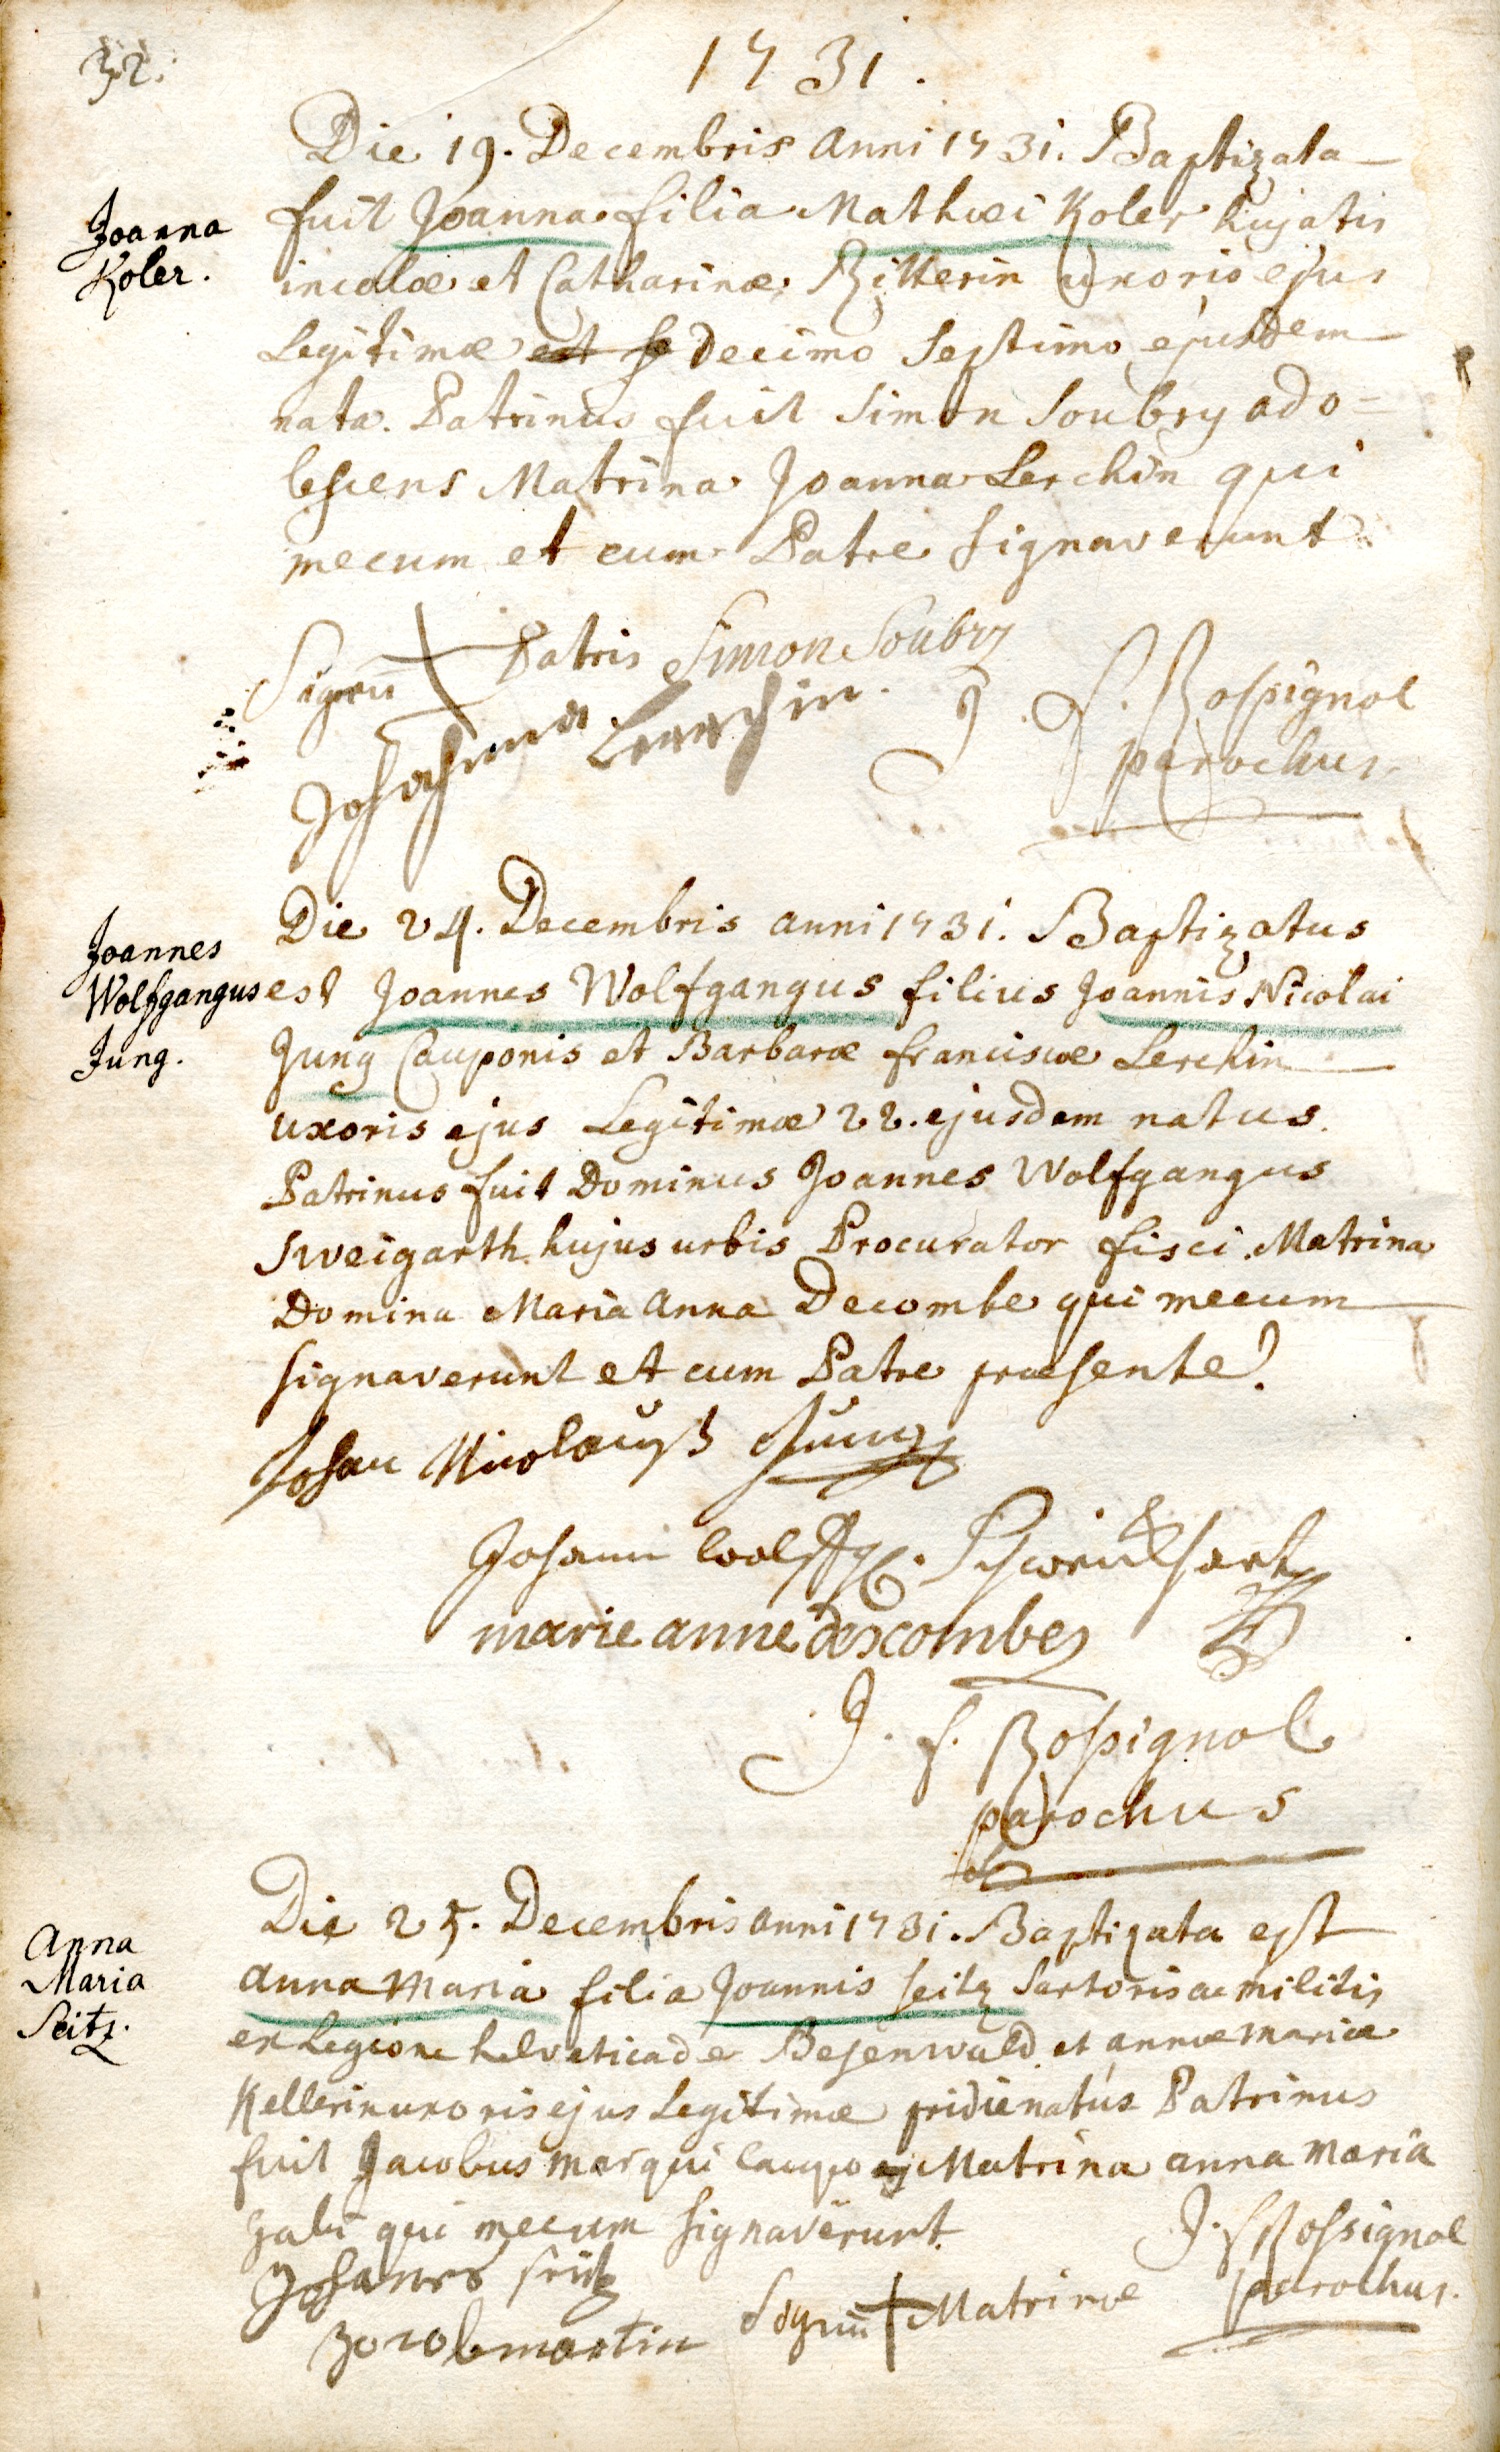 32.
1731.
Die 19. Decembris Anni 1731. Baptizata
Joanna
Koler.
fuit Joanna filia Mathæi Koler hujatis
incolæ et Catharinæ Ritterin uxoris ejus
Legitimæ et se Decimo Septimo ejusdem
nata. Patrinus fuit Simon Soubry ado=
lescens Matrina Joanna Lerchin qui
mecum et cum Patre signaverunt
Signū Patris Simon Soubry
Johahnna Lerchin.
J. f. Rossignol
parochus
Joannes
Wolfgangus
Jung.
Die 24. Decembris anni 1731. Baptizatus
est Joannes Wolfgangus filius Joannis Nicolai
Jung Cauponis et Barbaræ franciscæ Lerchin
uxoris ejus Legitimæ 22. ejusdem natus.
Patrinus fuit Dominus Joannes Wolfgangus
Sweigarth hujus urbis Procurator fisci. Matrina
Domina Maria Anna Decombe qui mecum
signaverunt et cum Patre præsente.
Johan Nicolauß Jung
Johann Wolffg.
marie anne descombes
J. f. Rossignol
parochus
Anna
Maria
Seitz.
Die 25. Decembris anni 1731. Baptizata est
anna Maria filia Joannis seitz Sartoris ac militis
ex Legione helvetica de Besenwald et annæ mariæ
Kellerin uxoris ejus Legitimæ pridie natus Patrinus
fuit Jacobus marqui caupo Matrina anna Maria
qui mecum signaverunt.
Johannes seitz
J. f. Rossignol
parochus.
Signū Matrinæ
martin